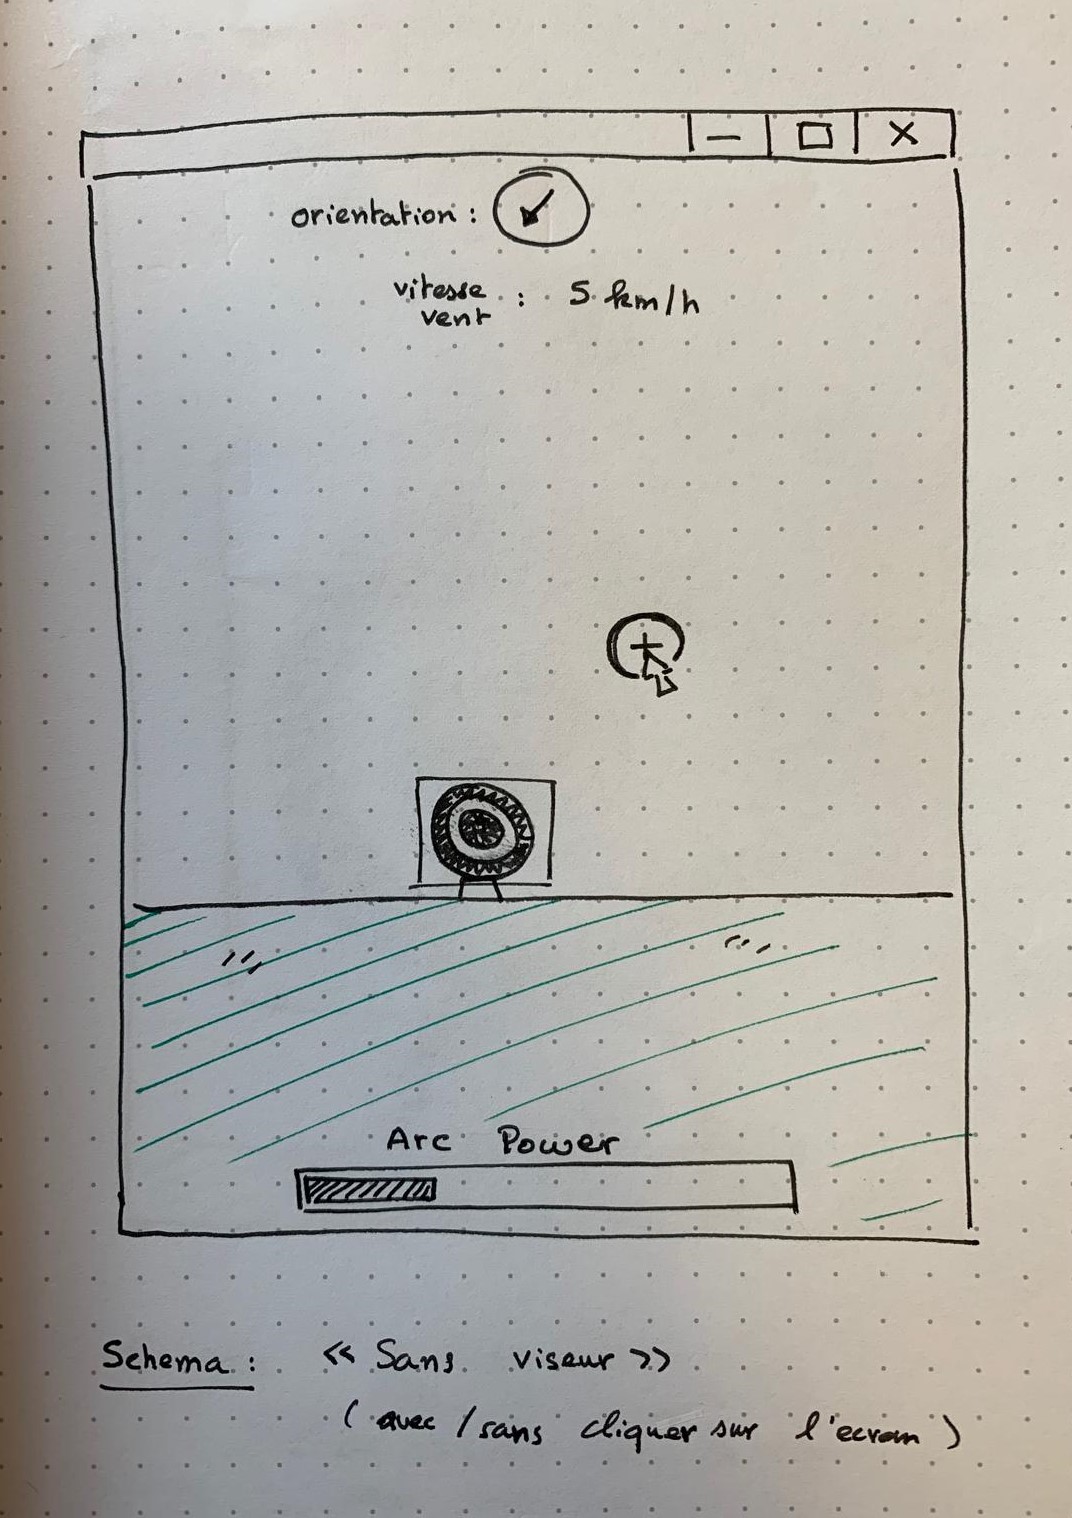 orientation :
vitesse
vent : 5 km/h
Arc Power
Schema : << Sans viseur >>
( avec / sans cliquer sur l'ecran )